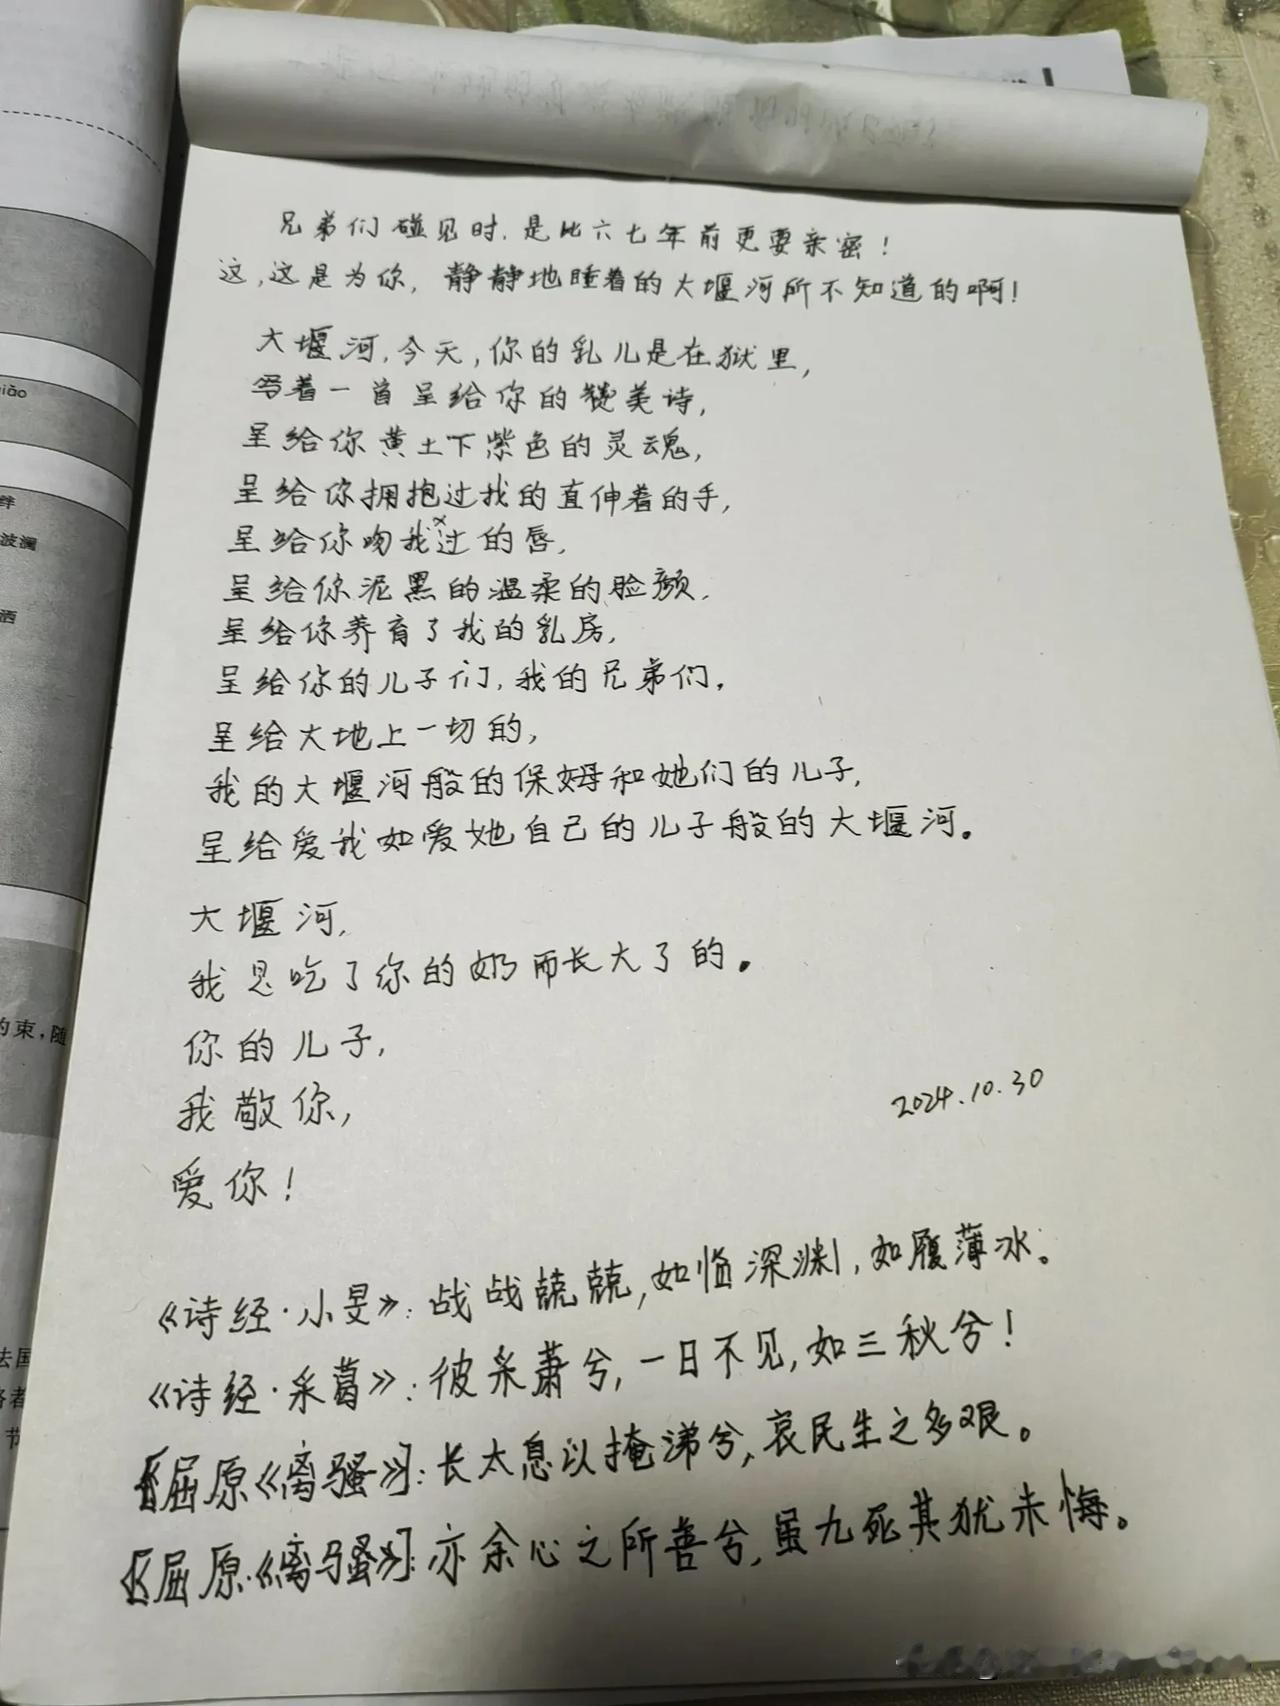 兄弟们碰见时,是比六七年前更要亲密!
这,这是为你,静静地睡着的大堰河所不知道的啊!
大堰河,今天,你的乳儿是在狱里,
写着一首呈给你的赞美诗,
呈给你黄土下紫色的灵魂,
呈给你拥抱过我的直伸着的手,
呈给你吻我过的唇,
呈给你泥黑的温柔的脸颜,
呈给你养育了我的乳房,
呈给你的儿子们,我的兄弟们,
呈给大地上一切的,
我的大堰河般的保姆和她们的儿子,
呈给爱我如爱她自己的儿子般的大堰河。
大堰河,
我是吃了你的奶而长大了的。
你的儿子,
我敬你,
2024.10.30
爱你!
《诗经·小旻》:战战兢兢,如临深渊,如履薄冰。
《诗经·采葛》:彼采萧兮,一日不见,如三秋兮!
[屈原《离骚》]:长太息以掩涕兮,哀民生之多艰。
[屈原·《离骚》]:亦余心之所善兮,虽九死其犹未悔。
iǎo
绊
波澜
洒
约束,随
法国
节